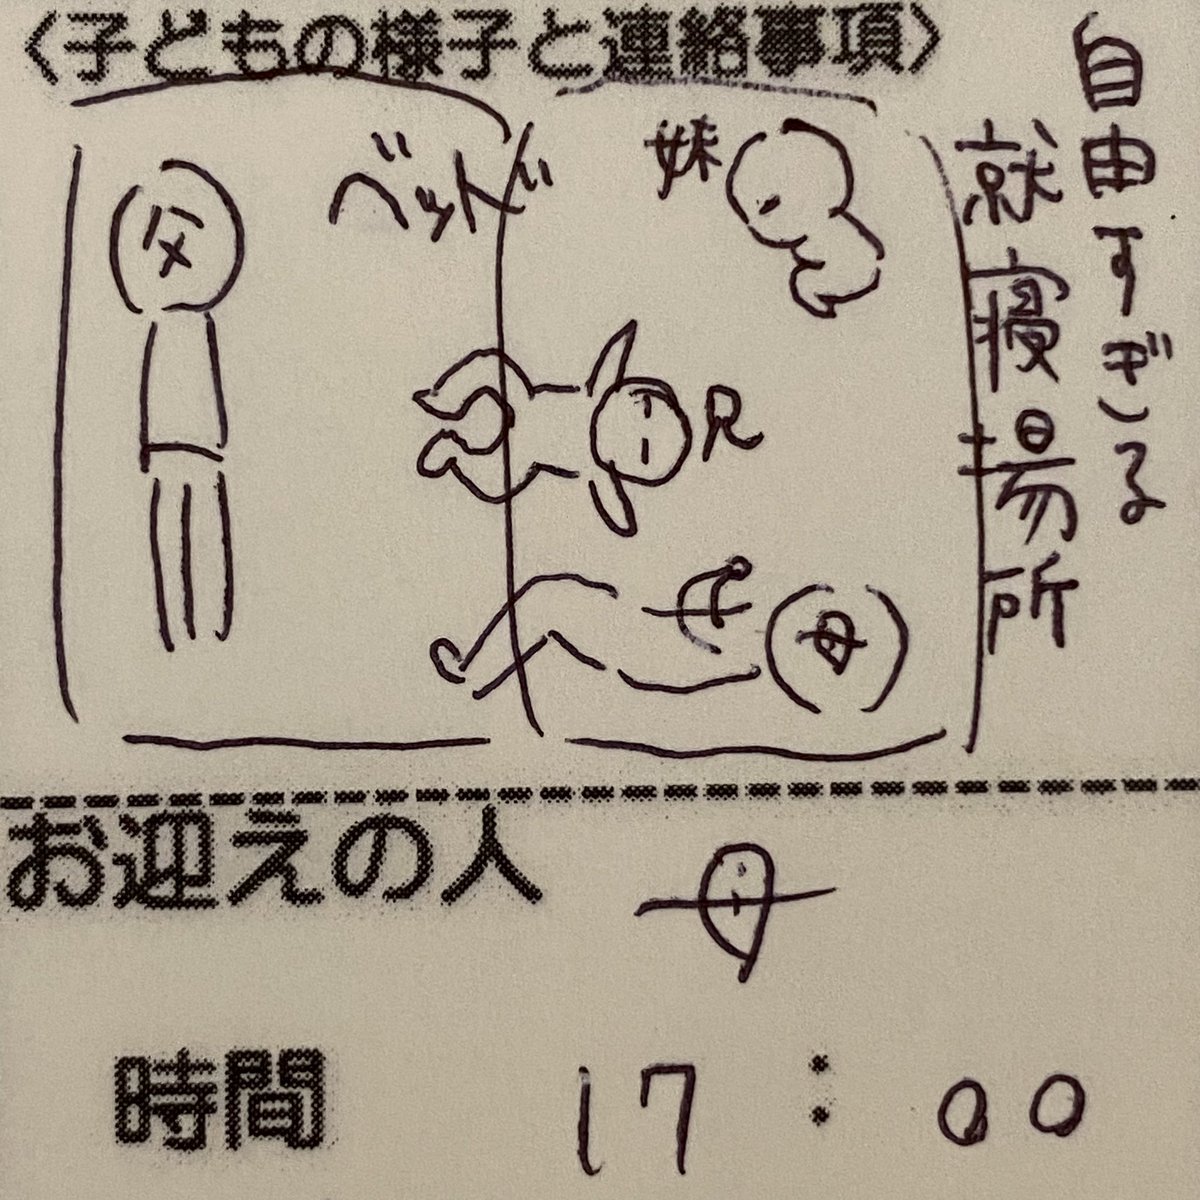 〈子どもの様子と連絡事項〉
自由すぎる
就寝場所
父
ベッド
妹
R
母
お迎えの人
母
時間
17:00